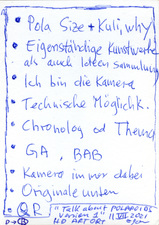 Pola Size + Kuli, why
Eigenständige Kunstwerke
als auch Ideensammlung
Ich bin die Kamera
Technische Möglichk.
Chronolog od Thema
GA, BAB
Kamera immer dabei
Originale unten
QR
"Talk about POLAROIDS
Version 1" 11.VIII 2021
HD ARTORT